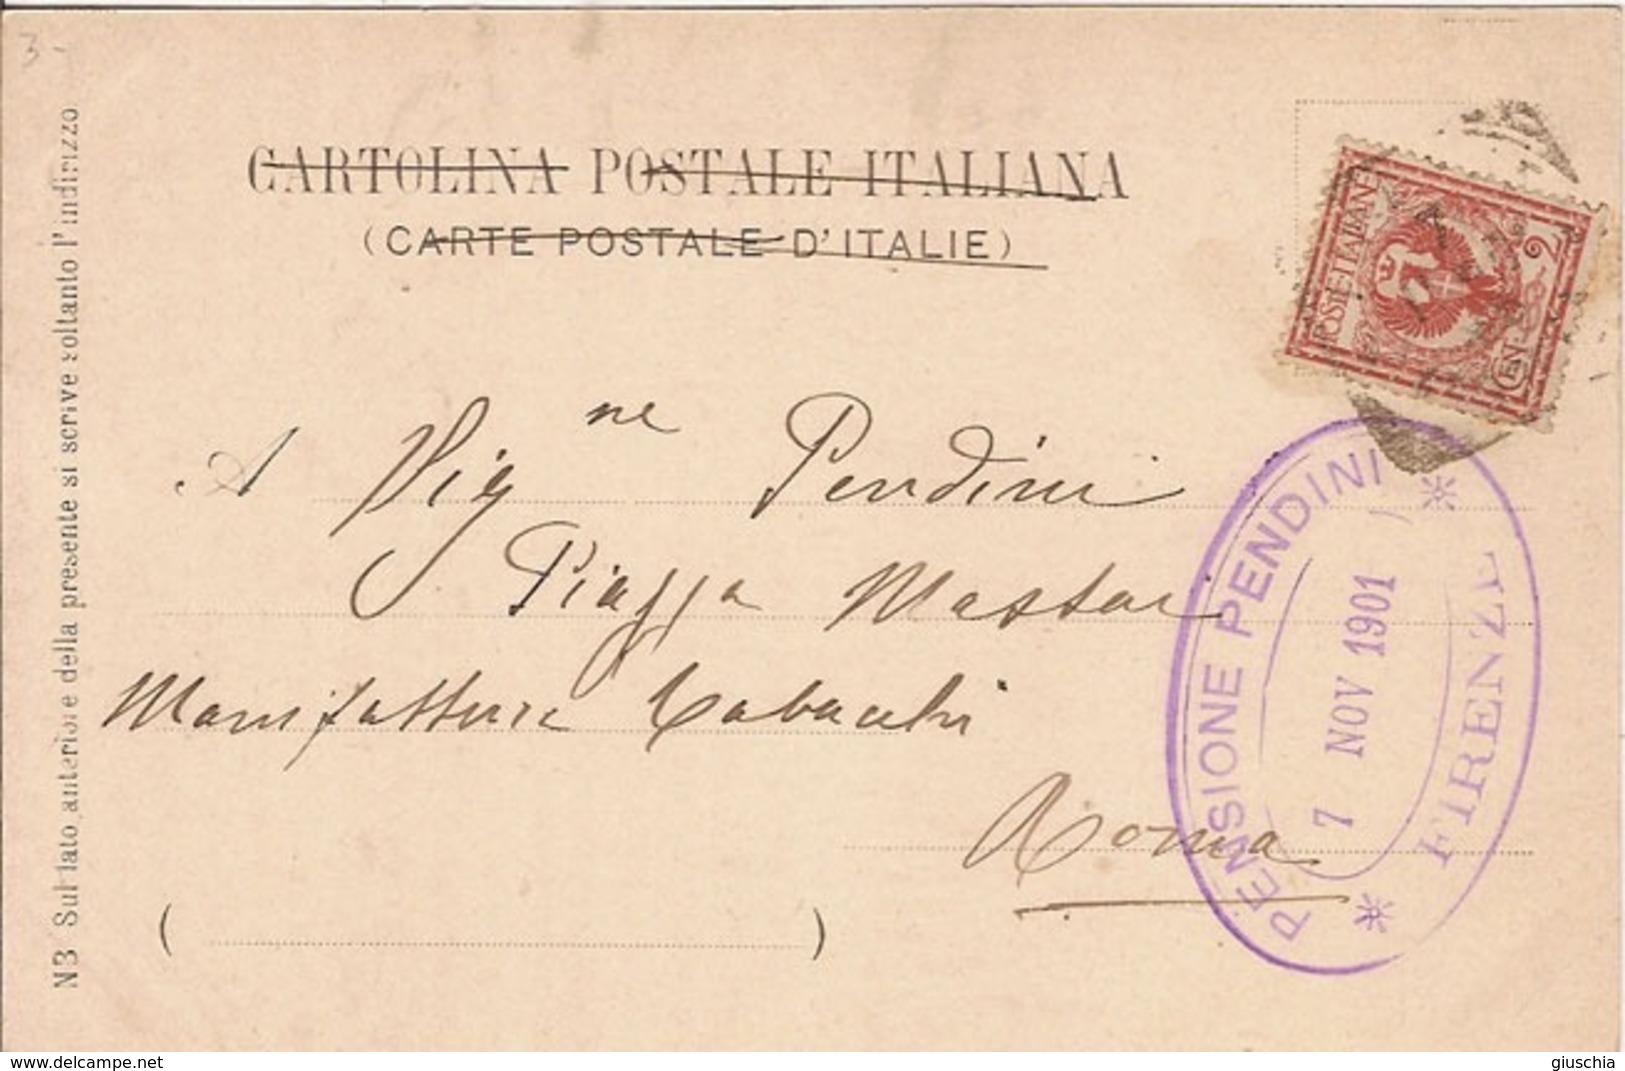 3-
CARTOLINA POSTALE ITALIANA
(CARTE POSTALE D'ITALIE)
POSTE ITALIANE
CEN 2
A Sig.ne Pendini
Piazza Mastai
Manifattura Tabacchi
Roma
PENSIONE PENDINI
7 NOV 1901
FIRENZE
N3 Sul lato anteriore della presente si scrive soltanto l'indirizzo
www.delcampe.net
giuschia